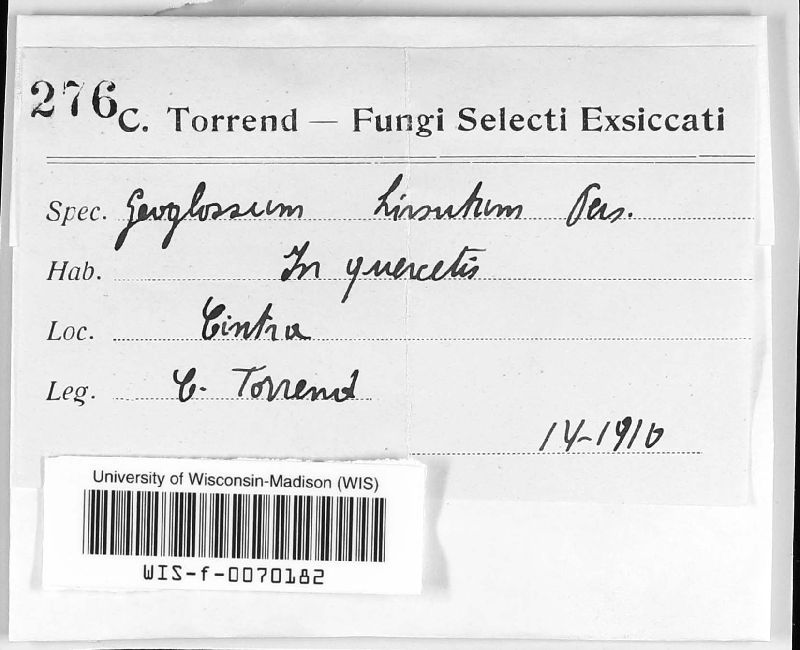 276 C. Torrend — Fungi Selecti Exsiccati
Spec. Geoglossum hirsutum Pers.
Hab. In quercetis
Loc. Cintra
Leg. C. Torrend
IV-1910
University of Wisconsin-Madison (WIS)
WIS-f-0070182